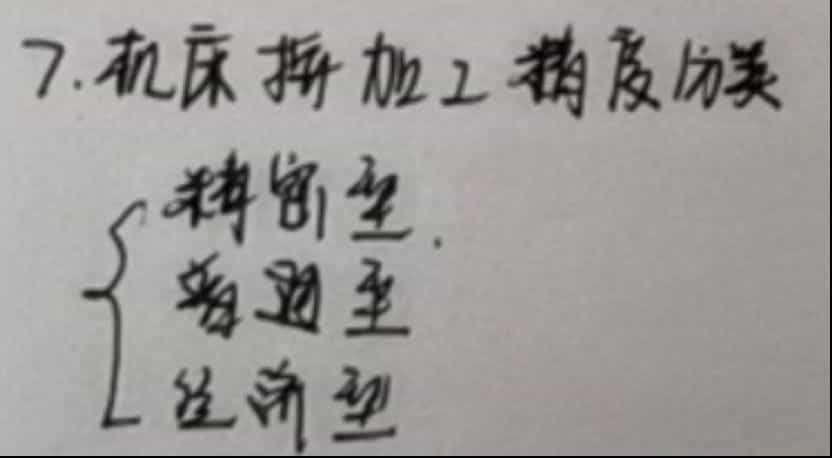 7.机床按加工精度分类
精密型.
普通型
经济型